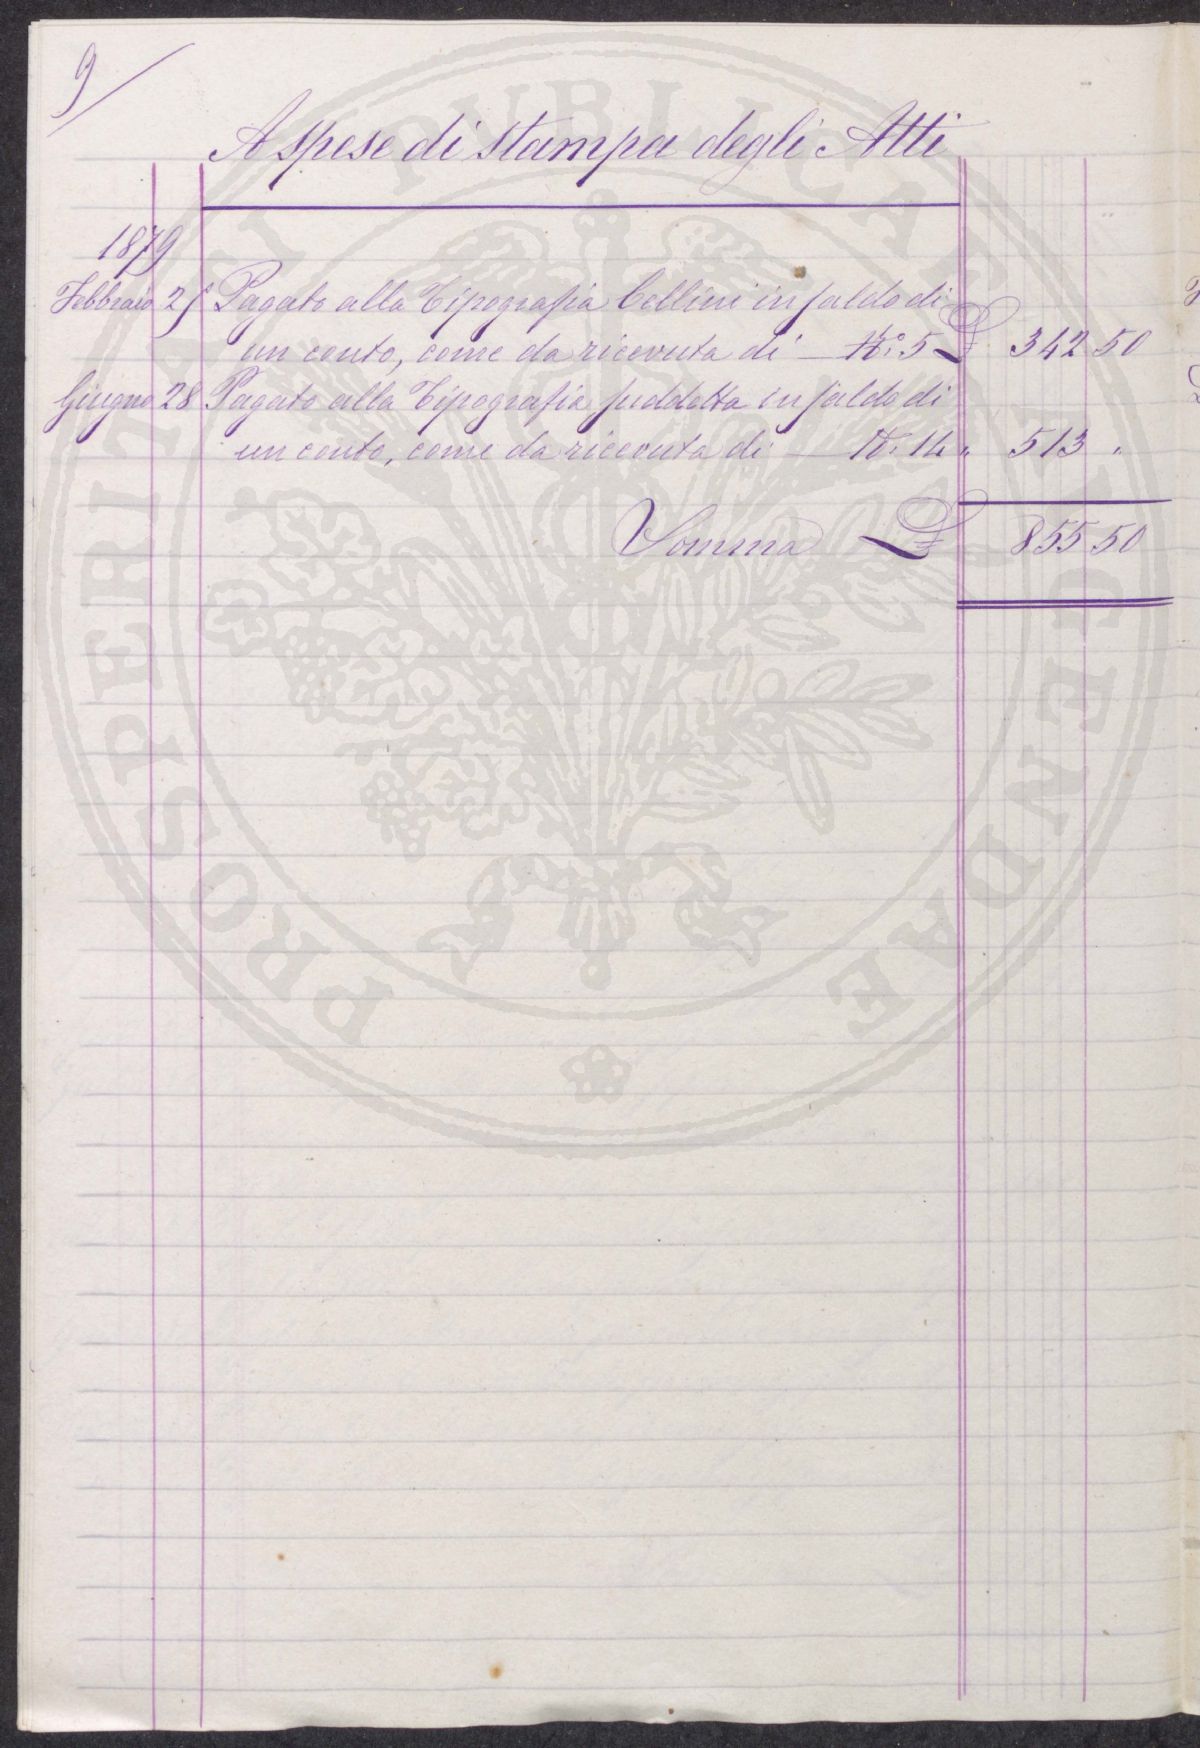 9
A spese di stampa degli Atti
1879
Febbraio Pagato alla Tipografia Cellini in saldo di
un conto, come da ricevuta di — N.° 5 £ 342 50
Giugno 28 Pagato alla Tipografia suddetta in saldo di
un conto, come da ricevuta di — N. 14 " 513 "
Somma £ 855 50
PROSPERITATI PUBLICAE AUGENDAE